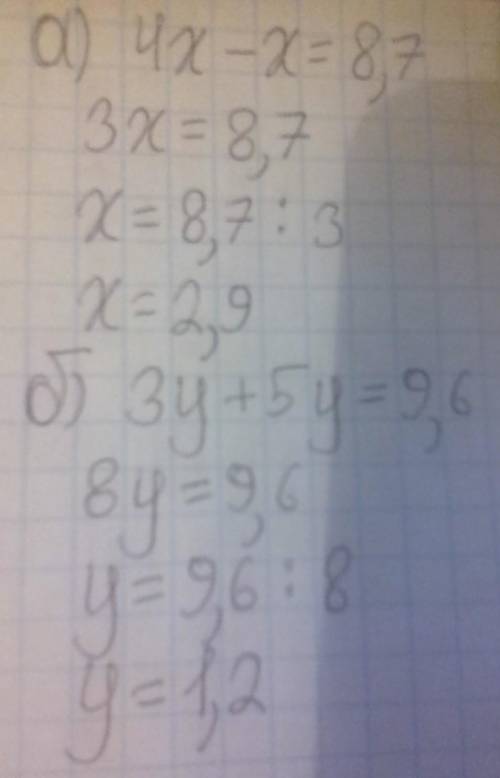 а) 4x - x = 8,7
3x = 8,7
x = 8,7 : 3
x = 2,9
б) 3y + 5y = 9,6
8y = 9,6
y = 9,6 : 8
y = 1,2